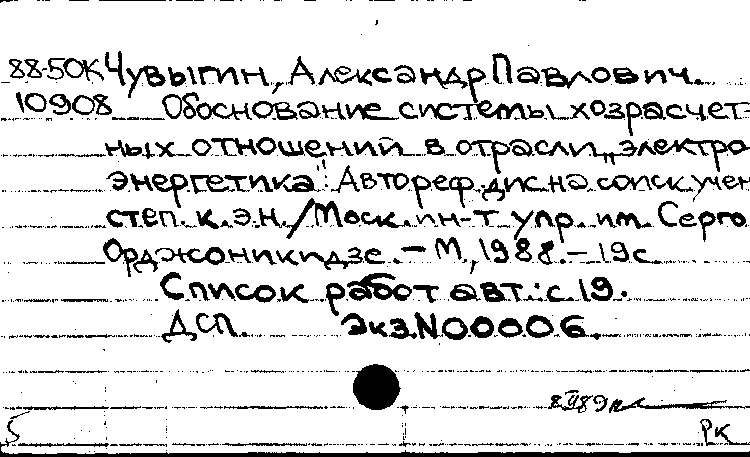 88-50К Чувыгин, Александр Павлович.
10908 Обоснование системы хозрасчет-
ных отношений в отрасли „электро-
энергетика": Автореф. дис. на соиск. учен.
степ. к.э.н. / Моск. ин-т упр. им. Серго
Орджоникидзе. – М., 1988. – 19с.
Список работ авт.: с. 19.
ДСП. Экз. N00006.
5 РК